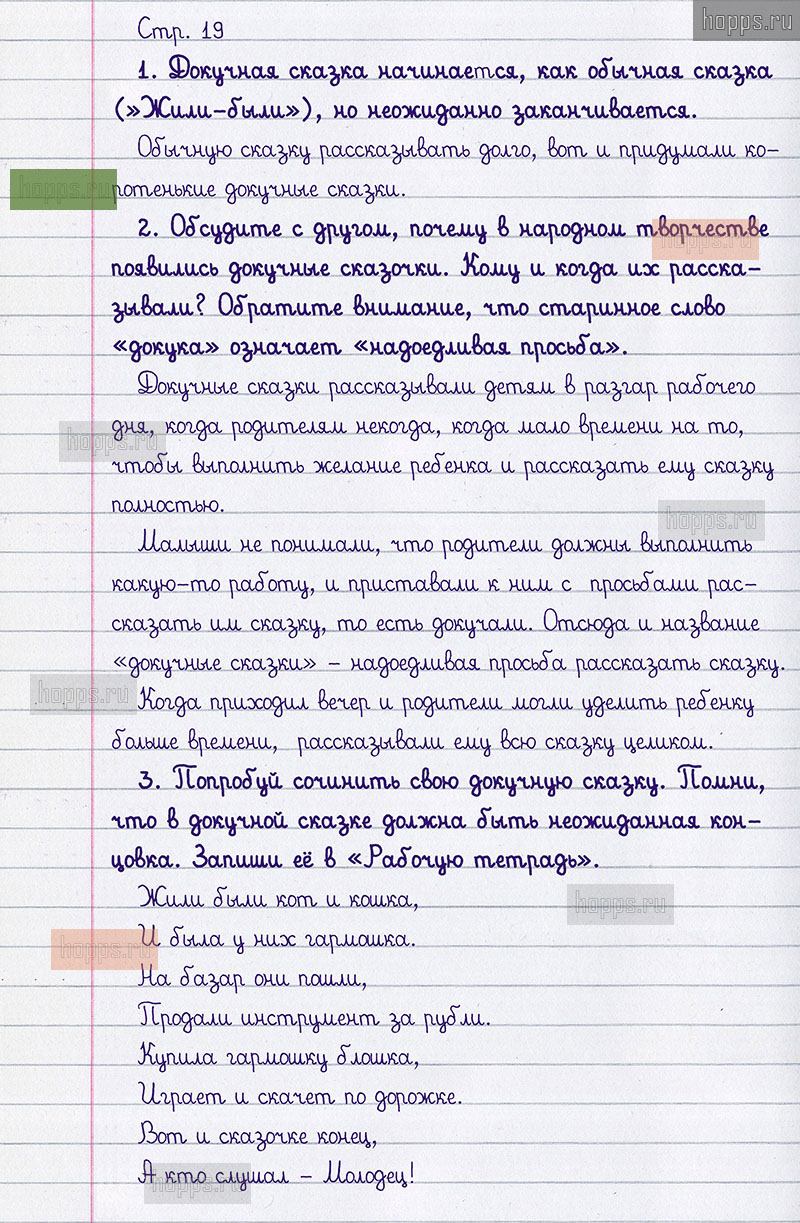 hopps.ru
Стр. 19
1. Докучная сказка начинается, как обычная сказка
(»Жили-были»), но неожиданно заканчивается.
Обычную сказку рассказывать долго, вот и придумали ко-
hopps.ru
ротенькие докучные сказки.
2. Обсудите с другом, почему в народном творчестве
hopps.ru
появились докучные сказочки. Кому и когда их расска-
зывали? Обратите внимание, что старинное слово
«докука» означает «надоедливая просьба».
Докучные сказки рассказывали детям в разгар рабочего
дня, когда родителям некогда, когда мало времени на то,
hopps.ru
чтобы выполнить желание ребенка и рассказать ему сказку
полностью.
hopps.ru
Малыши не понимали, что родители должны выполнить
какую-то работу, и приставали к ним с просьбами рас-
сказать им сказку, то есть докучали. Отсюда и название
«докучные сказки» – надоедливая просьба рассказать сказку.
hopps.ru
Когда приходил вечер и родители могли уделить ребенку
больше времени, рассказывали ему всю сказку целиком.
3. Попробуй сочинить свою докучную сказку. Помни,
что в докучной сказке должна быть неожиданная кон-
цовка. Запиши её в «Рабочую тетрадь».
Жили были кот и кошка,
hopps.ru
И была у них гармошка.
hopps.ru
На базар они пошли,
Продали инструмент за рубли.
Купила гармошку блошка,
Играет и скачет по дорожке.
Вот и сказочке конец,
А кто слушал – Молодец!
hopps.ru